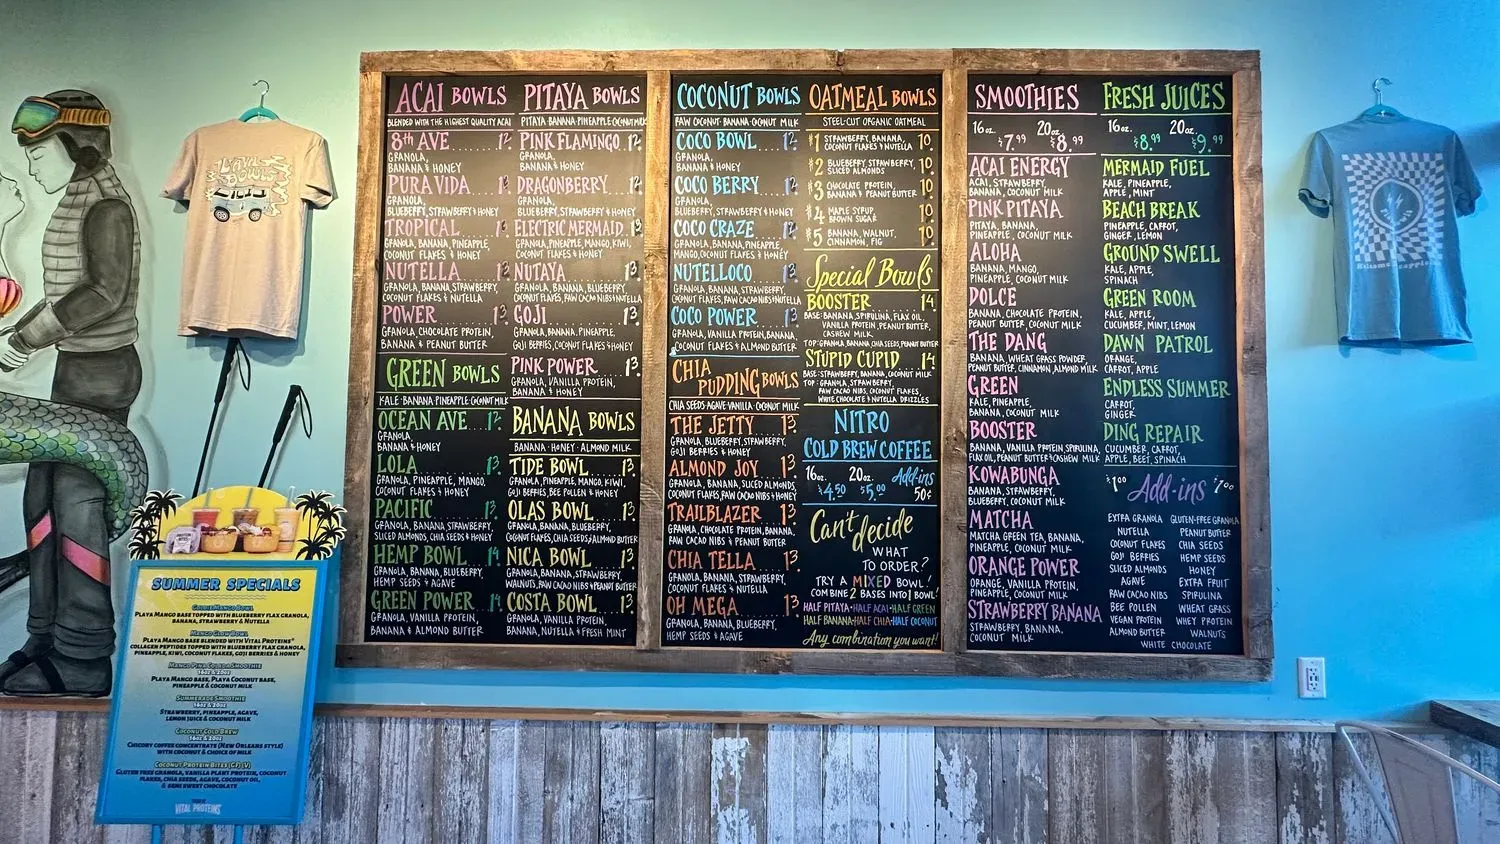 ACAI BOWLS
BLENDED WITH THE HIGHEST QUALITY ACAI
8th AVE 12.
GRANOLA,
BANANA & HONEY
PURA VIDA 12.
GRANOLA,
BLUEBERRY, STRAWBERRY & HONEY
TROPICAL 13.
GRANOLA, BANANA, PINEAPPLE,
COCONUT FLAKES & HONEY
NUTELLA 13.
GRANOLA, BANANA, STRAWBERRY,
COCONUT FLAKES & NUTELLA
POWER 13.
GRANOLA, CHOCOLATE PROTEIN,
BANANA & PEANUT BUTTER
GREEN BOWLS
KALE·BANANA·PINEAPPLE·COCONUT MILK
OCEAN AVE 12.
GRANOLA,
BANANA & HONEY
LOLA 13.
GRANOLA, PINEAPPLE, MANGO,
COCONUT FLAKES & HONEY
PACIFIC 13.
GRANOLA, BANANA, STRAWBERRY,
SLICED ALMONDS, CHIA SEEDS & HONEY
HEMP BOWL 14
GRANOLA, BANANA, BLUEBERRY,
HEMP SEEDS & AGAVE
GREEN POWER 14.
GRANOLA, VANILLA PROTEIN,
BANANA & ALMOND BUTTER
PITAYA BOWLS
PITAYA·BANANA·PINEAPPLE·COCONUT MILK
PINK FLAMINGO 12.
GRANOLA,
BANANA & HONEY
DRAGONBERRY 12.
GRANOLA,
BLUEBERRY, STRAWBERRY & HONEY
ELECTRIC MERMAID 13.
GRANOLA, PINEAPPLE, MANGO, KIWI,
COCONUT FLAKES & HONEY
NUTAYA 13.
GRANOLA, BANANA, BLUEBERRY,
COCONUT FLAKES, RAW CACAO NIBS & NUTELLA
GOJI 13.
GRANOLA, BANANA, PINEAPPLE,
GOJI BERRIES, COCONUT FLAKES & HONEY
PINK POWER 13.
GRANOLA, VANILLA PROTEIN,
BANANA & HONEY
BANANA BOWLS
BANANA·HONEY·ALMOND MILK
TIDE BOWL 13.
GRANOLA, PINEAPPLE, MANGO, KIWI,
GOJI BERRIES, BEE POLLEN & HONEY
OLAS BOWL 13.
GRANOLA, BANANA, BLUEBERRY,
COCONUT FLAKES, CHIA SEEDS & ALMOND BUTTER
NICA BOWL 13.
GRANOLA, BANANA, STRAWBERRY,
WALNUTS, RAW CACAO NIBS & PEANUT BUTTER
COSTA BOWL 13.
GRANOLA, VANILLA PROTEIN,
BANANA, NUTELLA & FRESH MINT
COCONUT BOWLS
RAW COCONUT·BANANA·COCONUT MILK
COCO BOWL 12.
GRANOLA,
BANANA & HONEY
COCO BERRY 12.
GRANOLA,
BLUEBERRY, STRAWBERRY & HONEY
COCO CRAZE 12.
GRANOLA, BANANA, PINEAPPLE,
MANGO, COCONUT FLAKES & HONEY
NUTELLOCO 13
GRANOLA, BANANA, STRAWBERRY,
COCONUT FLAKES, RAW CACAO NIBS & NUTELLA
COCO POWER 13.
GRANOLA, VANILLA PROTEIN, BANANA,
COCONUT FLAKES & ALMOND BUTTER
CHIA
PUDDING BOWLS
CHIA SEEDS·AGAVE·VANILLA·COCONUT MILK
THE JETTY 13.
GRANOLA, BLUEBERRY, STRAWBERRY,
GOJI BERRIES & HONEY
ALMOND JOY 13
GRANOLA, BANANA, SLICED ALMONDS,
COCONUT FLAKES, RAW CACAO NIBS & HONEY
TRAILBLAZER 13.
GRANOLA, CHOCOLATE PROTEIN, BANANA,
RAW CACAO NIBS & PEANUT BUTTER
CHIA TELLA 13
GRANOLA, BANANA, STRAWBERRY,
COCONUT FLAKES & NUTELLA
OH MEGA 13
GRANOLA, BANANA, BLUEBERRY,
HEMP SEEDS & AGAVE
OATMEAL BOWLS
STEEL-CUT ORGANIC OATMEAL
#1 STRAWBERRY, BANANA, 10.
COCONUT FLAKES & NUTELLA
#2 BLUEBERRY, STRAWBERRY, 10.
SLICED ALMONDS
#3 CHOCOLATE PROTEIN, 10.
BANANA & PEANUT BUTTER
#4 MAPLE SYRUP, 10.
BROWN SUGAR
#5 BANANA, WALNUT, 10.
CINNAMON, FIG
Special Bowls
BOOSTER 14
BASE: BANANA, SPIRULINA, FLAX OIL,
VANILLA PROTEIN, PEANUT BUTTER,
CASHEW MILK
TOP: GRANOLA, BANANA, CHIA SEEDS, PEANUT BUTTER
STUPID CUPID 14
BASE: STRAWBERRY, BANANA, COCONUT MILK
TOP: GRANOLA, STRAWBERRY,
RAW CACAO NIBS, COCONUT FLAKES,
WHITE CHOCOLATE & NUTELLA DRIZZLES
NITRO
COLD BREW COFFEE
16oz. 20oz. Add-ins
$4.50 $5.00 50¢
Can't decide
WHAT
TO ORDER?
TRY A MIXED BOWL!
COMBINE 2 BASES INTO 1 BOWL!
HALF PITAYA·HALF ACAI·HALF GREEN
HALF BANANA·HALF CHIA·HALF COCONUT
Any combination you want!
SMOOTHIES
16oz. 20oz.
$7.99 $8.99
ACAI ENERGY
ACAI, STRAWBERRY,
BANANA, COCONUT MILK
PINK PITAYA
PITAYA, BANANA,
PINEAPPLE, COCONUT MILK
ALOHA
BANANA, MANGO,
PINEAPPLE, COCONUT MILK
DOLCE
BANANA, CHOCOLATE PROTEIN,
PEANUT BUTTER, COCONUT MILK
THE DANG
BANANA, WHEAT GRASS POWDER,
PEANUT BUTTER, CINNAMON, ALMOND MILK
GREEN
KALE, PINEAPPLE,
BANANA, COCONUT MILK
BOOSTER
BANANA, VANILLA PROTEIN, SPIRULINA,
FLAX OIL, PEANUT BUTTER & CASHEW MILK
KOWABUNGA
BANANA, STRAWBERRY,
BLUEBERRY, COCONUT MILK
MATCHA
MATCHA GREEN TEA, BANANA,
PINEAPPLE, COCONUT MILK
ORANGE POWER
ORANGE, VANILLA PROTEIN,
PINEAPPLE, COCONUT MILK
STRAWBERRY BANANA
STRAWBERRY, BANANA,
COCONUT MILK
FRESH JUICES
16oz. 20oz.
$8.99 $9.99
MERMAID FUEL
KALE, PINEAPPLE,
APPLE, MINT
BEACH BREAK
PINEAPPLE, CARROT,
GINGER, LEMON
GROUND SWELL
KALE, APPLE,
SPINACH
GREEN ROOM
KALE, APPLE,
CUCUMBER, MINT, LEMON
DAWN PATROL
ORANGE,
CARROT, APPLE
ENDLESS SUMMER
CARROT,
GINGER
DING REPAIR
CUCUMBER, CARROT,
APPLE, BEET, SPINACH
$1.00 Add-ins $1.00
EXTRA GRANOLA GLUTEN-FREE GRANOLA
NUTELLA PEANUT BUTTER
COCONUT FLAKES CHIA SEEDS
GOJI BERRIES HEMP SEEDS
SLICED ALMONDS HONEY
AGAVE EXTRA FRUIT
RAW CACAO NIBS SPIRULINA
BEE POLLEN WHEAT GRASS
VEGAN PROTEIN WHEY PROTEIN
ALMOND BUTTER WALNUTS
WHITE CHOCOLATE
PLAYA
BOWLS
SUMMER SPECIALS
GOLDIE MANGO BOWL
PLAYA MANGO BASE TOPPED WITH BLUEBERRY FLAX GRANOLA,
BANANA, STRAWBERRY & NUTELLA
MANGO GLOW BOWL
PLAYA MANGO BASE BLENDED WITH VITAL PROTEINS®
COLLAGEN PEPTIDES TOPPED WITH BLUEBERRY FLAX GRANOLA,
PINEAPPLE, KIWI, COCONUT FLAKES, GOJI BERRIES & HONEY
MANGO PINA COLADA SMOOTHIE
16oz & 20oz
PLAYA MANGO BASE, PLAYA COCONUT BASE,
PINEAPPLE & COCONUT MILK
SUMMERADE SMOOTHIE
16oz & 20oz
STRAWBERRY, PINEAPPLE, AGAVE,
LEMON JUICE & COCONUT MILK
COCONUT COLD BREW
16oz & 20oz
CHICORY COFFEE CONCENTRATE (NEW ORLEANS STYLE)
WITH COCONUT & CHOICE OF MILK
COCONUT PROTEIN BITES (GF) (V)
GLUTEN FREE GRANOLA, VANILLA PLANT PROTEIN, COCONUT
FLAKES, CHIA SEEDS, AGAVE, COCONUT OIL,
& SEMI SWEET CHOCOLATE
VITAL PROTEINS